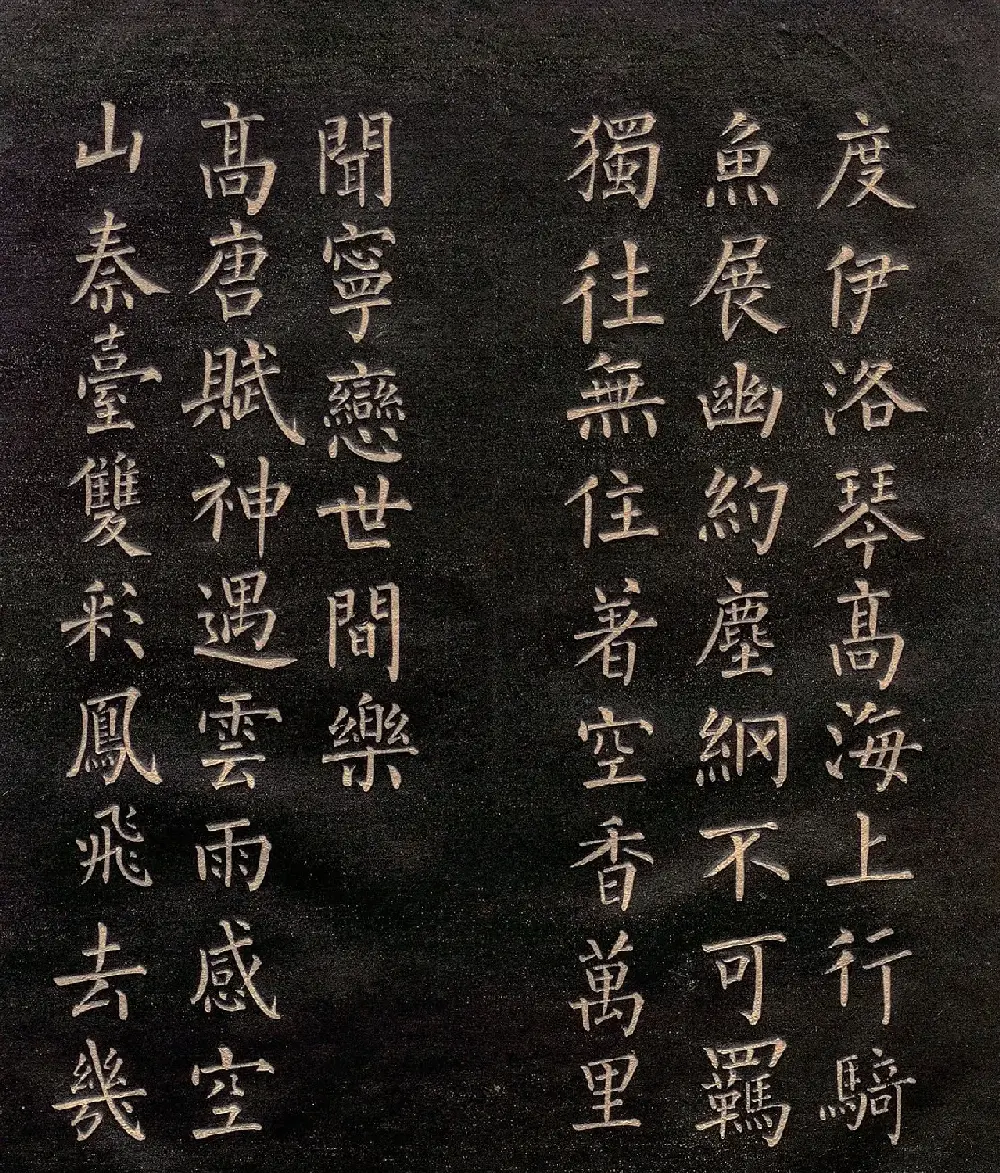 度伊洛琴高海上行騎
魚展幽約塵網不可羈
獨往無住著空香萬里
聞寧戀世間樂
高唐賦神遇雲雨感空
山秦臺雙彩鳳飛去幾